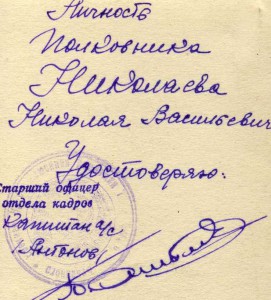 Личность
Полковника
Николаева
Николая Васильевич
Удостоверяю:
Старший офицер
отдела кадров
Капитан а/с
/Антонов/